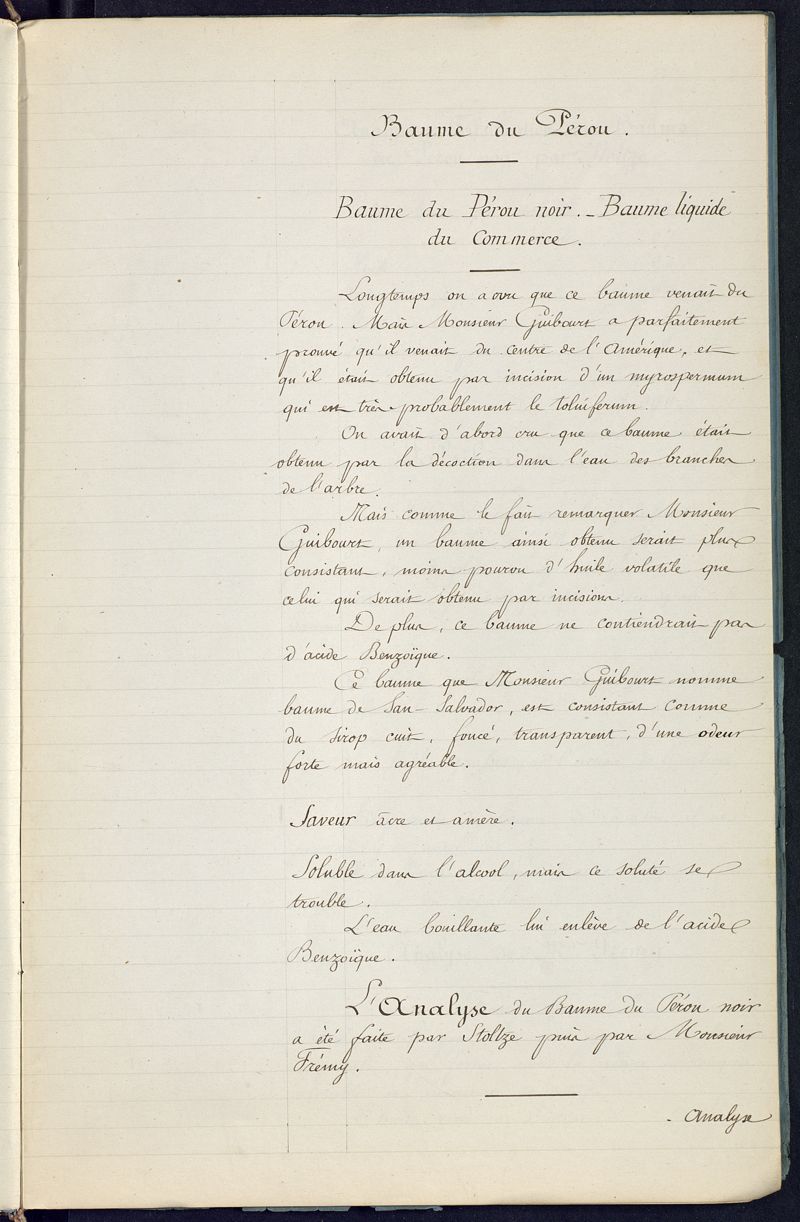 Baume du Pérou.
Baume du Pérou noir. – Baume liquide
du Commerce.
Longtemps on a cru que ce baume venait du
Pérou. Mais Monsieur Guibourt a parfaitement
prouvé qu'il venait du centre de l'Amérique, et
qu'il était obtenu par incision d'un myrospermum
qui est très probablement le toluiferum.
On avait d'abord cru que ce baume était
obtenu par la décoction dans l'eau des branches
de l'arbre.
Mais comme le fait remarquer Monsieur
Guibourt, un baume ainsi obtenu serait plus
consistant, moins pourvu d'huile volatile que
celui qui serait obtenu par incisions.
De plus, ce baume ne contiendrait pas
d'acide Benzoïque.
Ce baume que Monsieur Guibourt nomme
baume de San-Salvador, est consistant comme
du sirop cuit, foncé, transparent, d'une odeur
forte mais agréable.
Saveur âcre et amère.
Soluble dans l'alcool, mais ce soluté se
trouble.
L'eau bouillante lui enlève de l'acide
Benzoïque.
L'Analyse du Baume du Pérou noir
a été faite par Stoltze puis par Monsieur
Frémy.
. Analyse